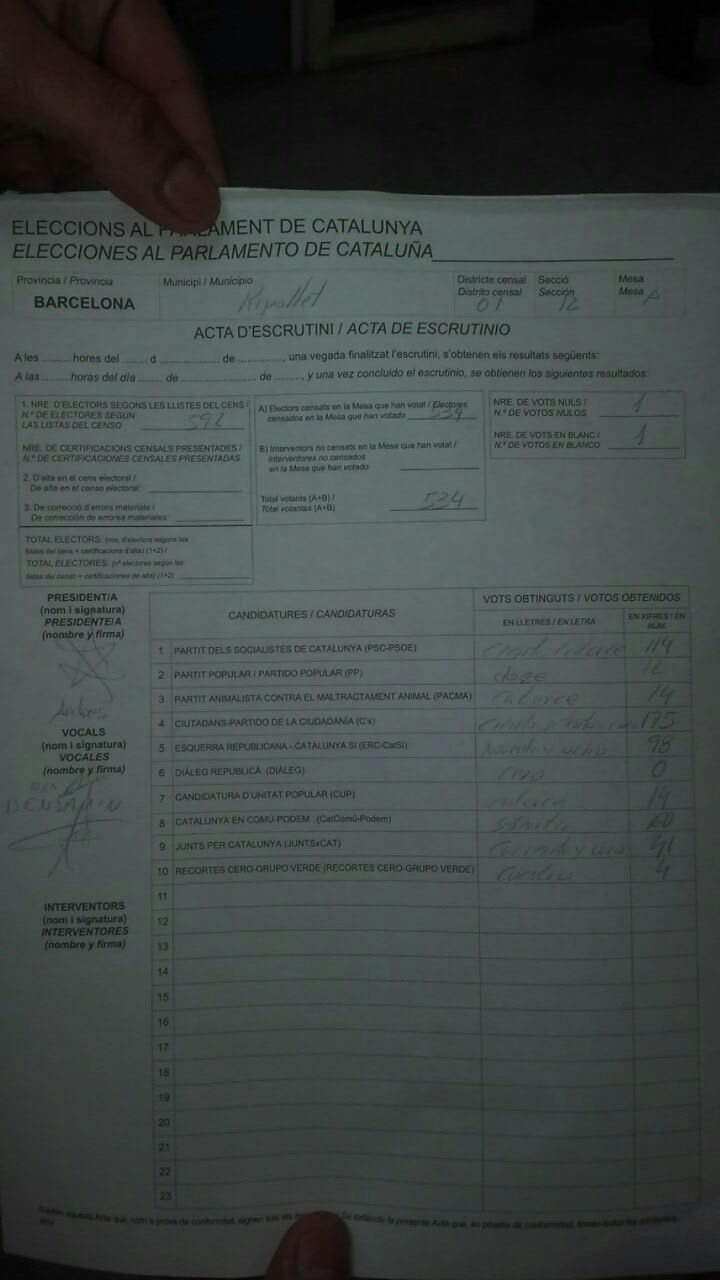 ELECCIONS AL PARLAMENT DE CATALUNYA
ELECCIONES AL PARLAMENTO DE CATALUÑA
Província / Provincia
BARCELONA
Municipi / Municipio
Ripollet
Districte censal
Distrito censal
01
Secció
Sección
12
Mesa
Mesa A
ACTA D'ESCRUTINI / ACTA DE ESCRUTINIO
A les ......... hores del ....... d .................. de ............., una vegada finalitzat l'escrutini, s'obtenen els resultats següents:
A las ......... horas del día ....... de .................. de ........, y una vez concluido el escrutinio, se obtienen los siguientes resultados:
1. NRE. D'ELECTORS SEGONS LES LLISTES DEL CENS /
N.º DE ELECTORES SEGÚN
LAS LISTAS DEL CENSO
NRE. DE CERTIFICACIONS CENSALS PRESENTADES /
N.º DE CERTIFICACIONES CENSALES PRESENTADAS
2. D'alta en el cens electoral /
De alta en el censo electoral:
3. De correcció d'errors materials /
De corrección de errores materiales:
TOTAL ELECTORS: (nre. d'electors segons les
llistes del cens + certificacions d'alta) (1+2) /
TOTAL ELECTORES: (nº electores según las
listas del censo + certificaciones de alta) (1+2)
A) Electors censats en la Mesa que han votat / Electores
censados en la Mesa que han votado 534
B) Interventors no censats en la Mesa que han votat /
Interventores no censados
en la Mesa que han votado
Total votants (A+B) /
Total votantes (A+B) 534
NRE. DE VOTS NULS /
N.º DE VOTOS NULOS 1
NRE. DE VOTS EN BLANC /
N.º DE VOTOS EN BLANCO 1
PRESIDENT/A
(nom i signatura)
PRESIDENTE/A
(nombre y firma)
VOCALS
(nom i signatura)
VOCALES
(nombre y firma)
BENJAMIN
INTERVENTORS
(nom i signatura)
INTERVENTORES
(nombre y firma)
CANDIDATURES / CANDIDATURAS
VOTS OBTINGUTS / VOTOS OBTENIDOS
EN LLETRES / EN LETRA
EN XIFRES / EN NÚM.
1 PARTIT DELS SOCIALISTES DE CATALUNYA (PSC-PSOE) 114
2 PARTIT POPULAR / PARTIDO POPULAR (PP) doce 12
3 PARTIT ANIMALISTA CONTRA EL MALTRACTAMENT ANIMAL (PACMA) catorce 14
4 CIUTADANS-PARTIDO DE LA CIUDADANÍA (C's) 175
5 ESQUERRA REPUBLICANA - CATALUNYA SÍ (ERC-CatSí) noventa y ocho 98
6 DIÀLEG REPUBLICÀ (DIÀLEG) cero 0
7 CANDIDATURA D'UNITAT POPULAR (CUP) catorce 14
8 CATALUNYA EN COMÚ-PODEM (CatComú-Podem) sesenta 60
9 JUNTS PER CATALUNYA (JUNTSxCAT) cuarenta y uno 41
10 RECORTES CERO-GRUPO VERDE (RECORTES CERO-GRUPO VERDE) cuatro 4
11
12
13
14
15
16
17
18
19
20
21
22
23